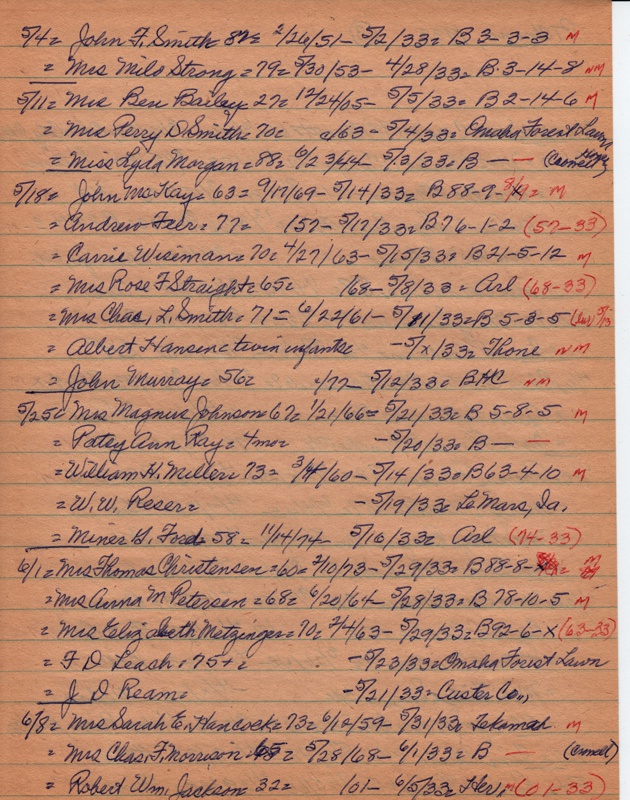 5/4 = John F. Smith = 82 = 2/26/51 - 5/2/33 = B 3-3-3 M
= Mrs Milo Strong = 79 = 5/30/53 - 4/28/33 = B. 3-14-8 NM
5/11 = Mrs Ben Bailey = 27 = 12/24/05 - 5/5/33 = B 2-14-6 M
= Mrs Perry D Smith = 70 = /63 - 5/4/33 = Omaha Forest Lawn
= Miss Lyda Morgan = 88 = 6/23/44 - 5/3/33 = B — —
5/18 = John McKay = 63 = 9/17/69 - 5/14/33 = B 88-9- = M
= Andrew = 77 = 157 - 5/17/33 = B 76-1-2 (57-33)
= Carrie Wiseman = 70 = 4/27/63 - 5/15/33 = B 21-5-12 M
= Mrs Rose F Straight = 65 = 168 - 5/8/33 = Arl (68-33)
= Mrs Chas, L. Smith = 71 = 6/22/61 - 5/11/33 = B 5-3-5
= Albert Hansen = twin infants = - 5/x/33 = NM
= John Murray = 56 = /77 - 5/12/33 = NM
5/25 = Mrs Magnus Johnson = 67 = 1/21/66 = 5/21/33 = B 5-8-5 M
= Patsy Ann Ray = 4mo = - 5/20/33 = B — —
= William H. Miller = 73 = /60 - 5/14/33 = B 63-4-10 M
= W. W. Reser = - 5/19/33 = Le Mars, Ia.
= Miner G. Ford = 58 = 11/14/74 - 5/16/33 = Arl (74-33)
6/1 = Mrs Thomas Christensen = 60 = 2/10/73 - 5/29/33 = B 88-8- = M
= Mrs Anna M Petersen = 68 = 6/20/64 - 5/28/33 = B 78-10-5 M
= Mrs Elizabeth Metzinger = 70 = 2/4/63 - 5/29/33 = B 92-6-x (63-33)
= F D Leash = 75+ = - 5/23/33 = Omaha Forest Lawn
= J. D Ream = - 5/21/33 = Custer Co.,
6/8 = Mrs Sarah E. Hancock = 73 = /59 - 5/31/33 = Tekamah. M
= Mrs Chas. F. Morrison = 65 = 5/28/68 - 6/1/33 = B —
= Robert Wm. Jackson = 32 = 101 - 6/5/33 = Her, (01-33)